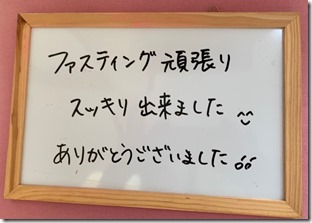 ファスティング 頑張り
スッキリ 出来ました
ありがとうございました